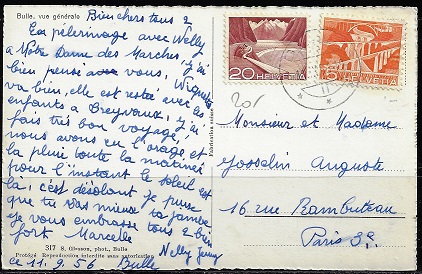 Bulle, vue générale
Bien chers tous 2
En pélerinage avec Nelly
a Notre Dame des Marches, j'ai
bien pensé à vous,
va bien, elle est restée avec les
enfants a Broyvaux, j'ai
fais très bon voyage,
nous avons eu l'orage, et
la pluie toute la matinée
pour l'instant le soleil est
là, c'est désolant je pense
que tu vas mieux ta jambe
je vous embrasse tous 2 bien
fort Marcelle
Nelly Jenny
317 S. Glasson, phot., Bulle
Protégé Reproduction interdite sans autorisation
ce 11.9.56 Bulle
20 HELVETIA
5 HELVETIA
Monsieur et Madame
Josselin Auguste
16 rue Rambuteau
Paris 3e